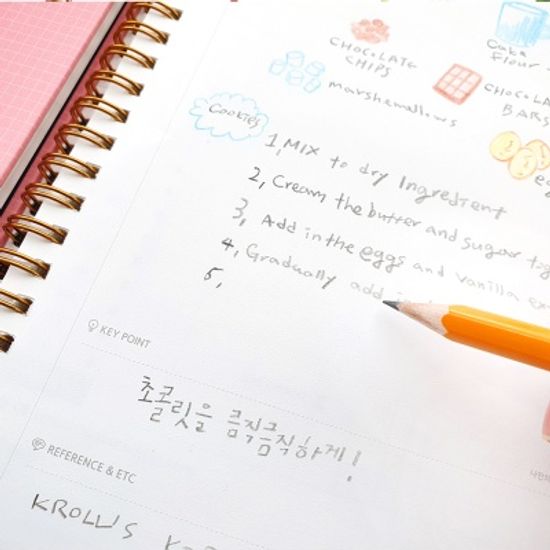 CHOCOLATE
CHIPS
Cake
flour
marshmallows
CHOCOLA
BARS
Cookies
1, MIX to dry Ingredient
2, Cream the butter and sugar tog
3, Add in the eggs and vanilla ex
4, Gradually add
5,
KEY POINT
초콜릿을 큼직큼직하게!
REFERENCE & ETC
KROLL'S K